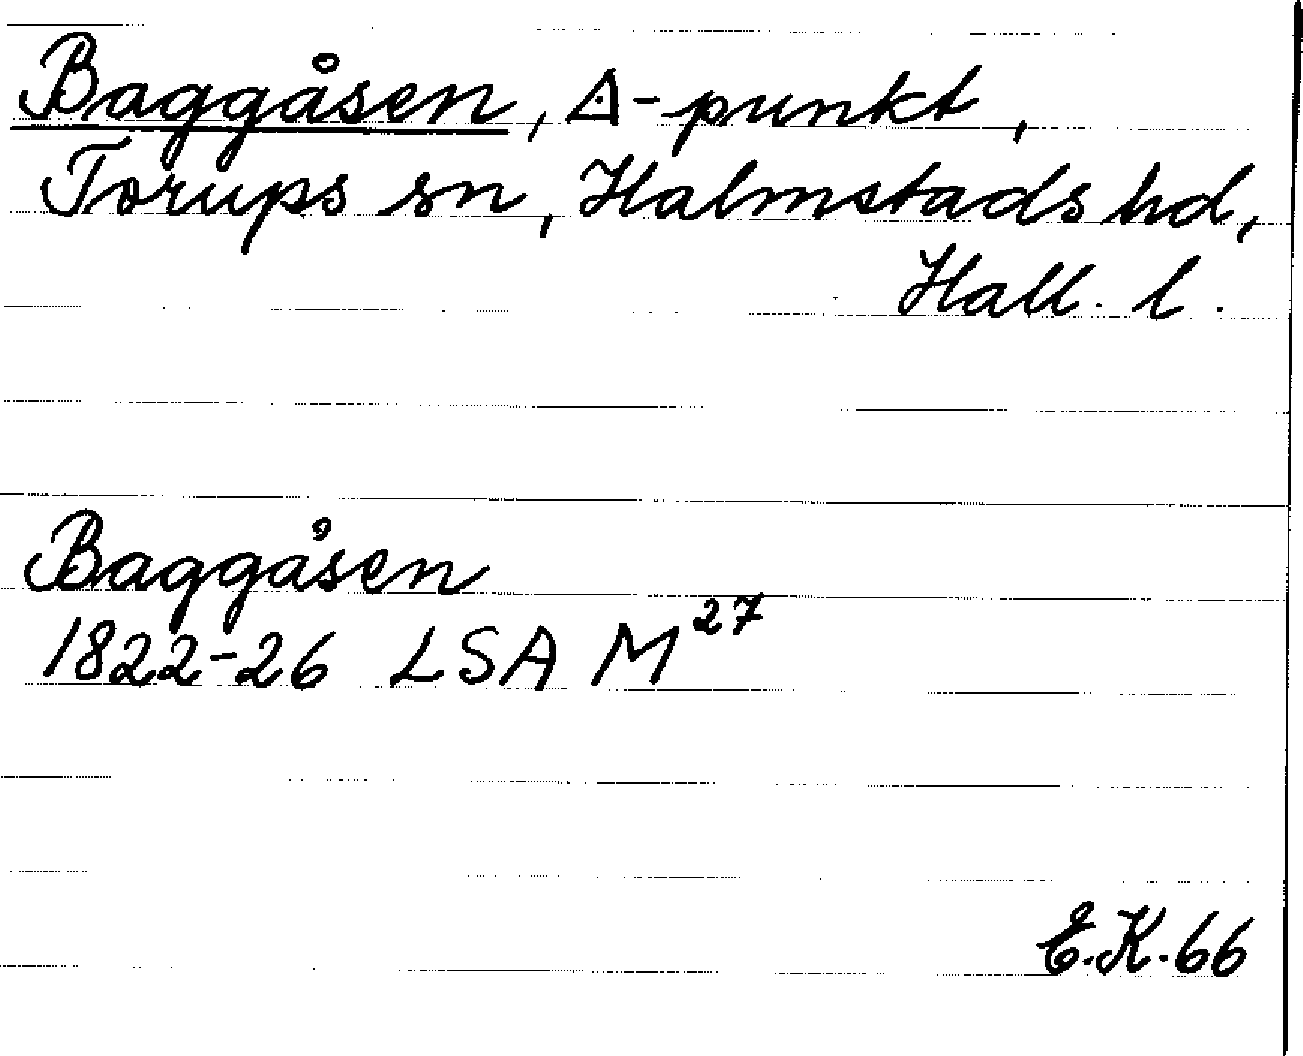 Baggåsen, ◬-punkt,
Torups sn, Halmstads hd,
Hall. l.
Baggåsen
1822-26 LSA M²⁷
E.K. 66